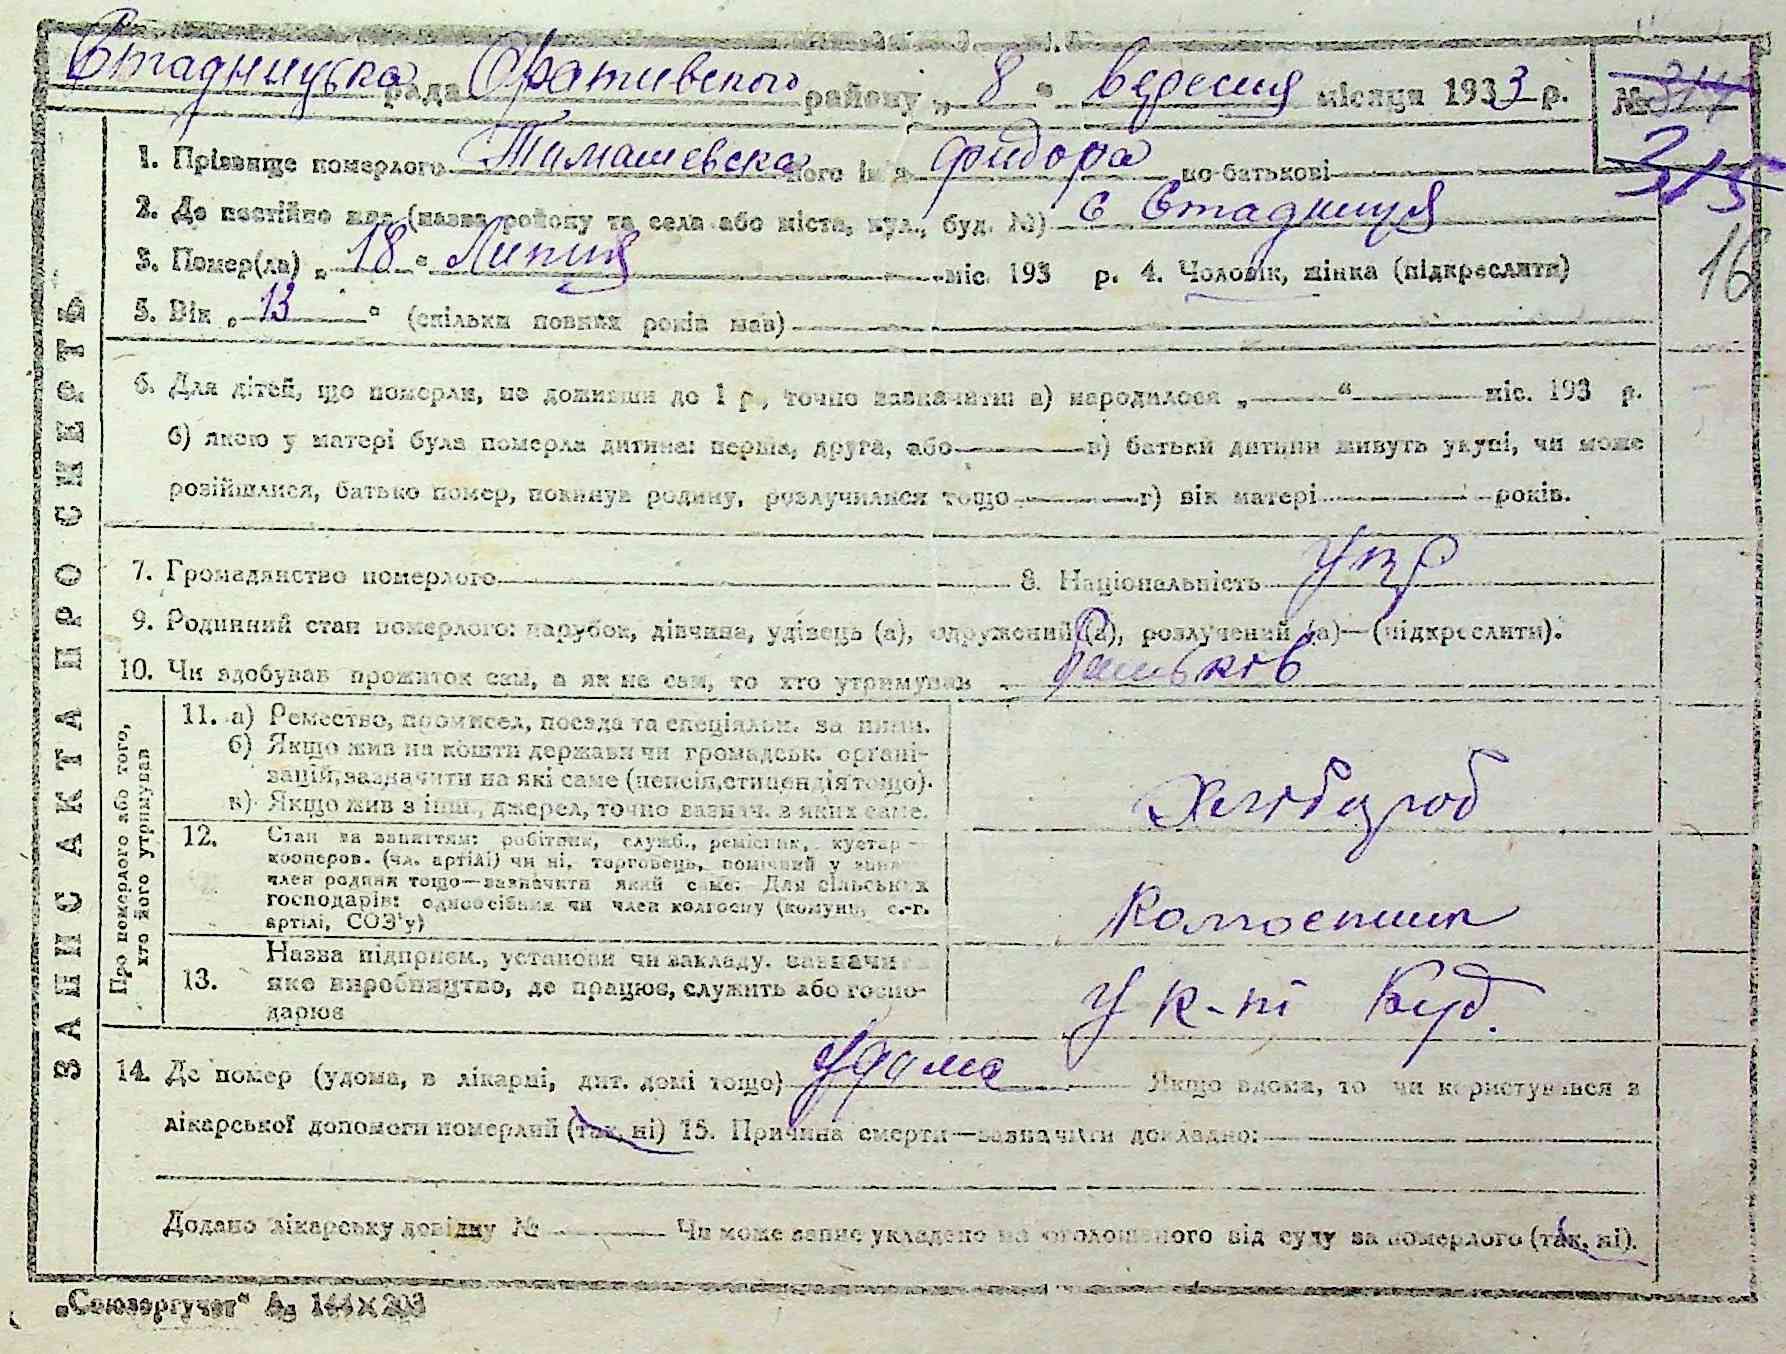 Стадницька рада Оратівського району „ 8 “ Вересня місяця 1933 р. № 314
315
1. Прізвище померлого Тимашевска його ім'я Фидора по-батькові
2. Де постійно жив (назва району та села або міста, вул., буд. №) с Стадниця
16
3. Помер(ла) „ 18 “ Липня міс. 193 р. 4. Чоловік, жінка (підкреслити)
5. Вік „ 13 “ (скільки повних років мав)
6. Для дітей, що померли, не доживши до 1 р., точно зазначити: а) народилося „ “ міс. 193 р.
б) якою у матері була померла дитина: перша, друга, або в) батьки дитини живуть укупі, чи може
розійшлися, батько помер, покинув родину, розлучилися тощо г) вік матері років.
7. Громадянство померлого 8. Національність Укр
9. Родинний стан померлого: парубок, дівчина, удівець (а), одружений (а), розлучений (а)—(підкреслити).
10. Чи здобував прожиток сам, а як не сам, то хто утримував батьків
ЗАПИС АКТА ПРО СМЕРТЬ
Про померлого або того,
хто його утримував
11. а) Ремество, промисел, посада та спеціяльн. за ними.
б) Якщо жив на кошти держави чи громадськ. органі-
зацій, зазначити на які саме (пенсія, стипендія тощо).
в) Якщо жив з інш., джерел, точно зазнач. з яких саме.
Хлібороб
12. Стан за заняттям: робітник, служб., ремісник, кустар—
кооперов. (чл. артілі) чи ні, торговець, помічний у занят.
член родини тощо—зазначити який саме: Для сільських
господарів: одноосібник чи член колгоспу (комуни, с.-г.
артілі, СОЗ'у)
Колгоспник
13. Назва підприєм., установи чи закладу. зазначити
яке виробництво, де працює, служить або госпо-
дарює
У к-пі Буд.
14. Де помер (удома, в лікарні, дит. домі тощо) Удома Якщо вдома, то чи користувався з
лікарської допомоги померлий (так, ні) 15. Причина смерти—зазначити докладно:
Додано лікарську довідку № Чи може запис укладено на оголошеного від суду за померлого (так, ні).
„Союзоргучет“ А₅ 144×203